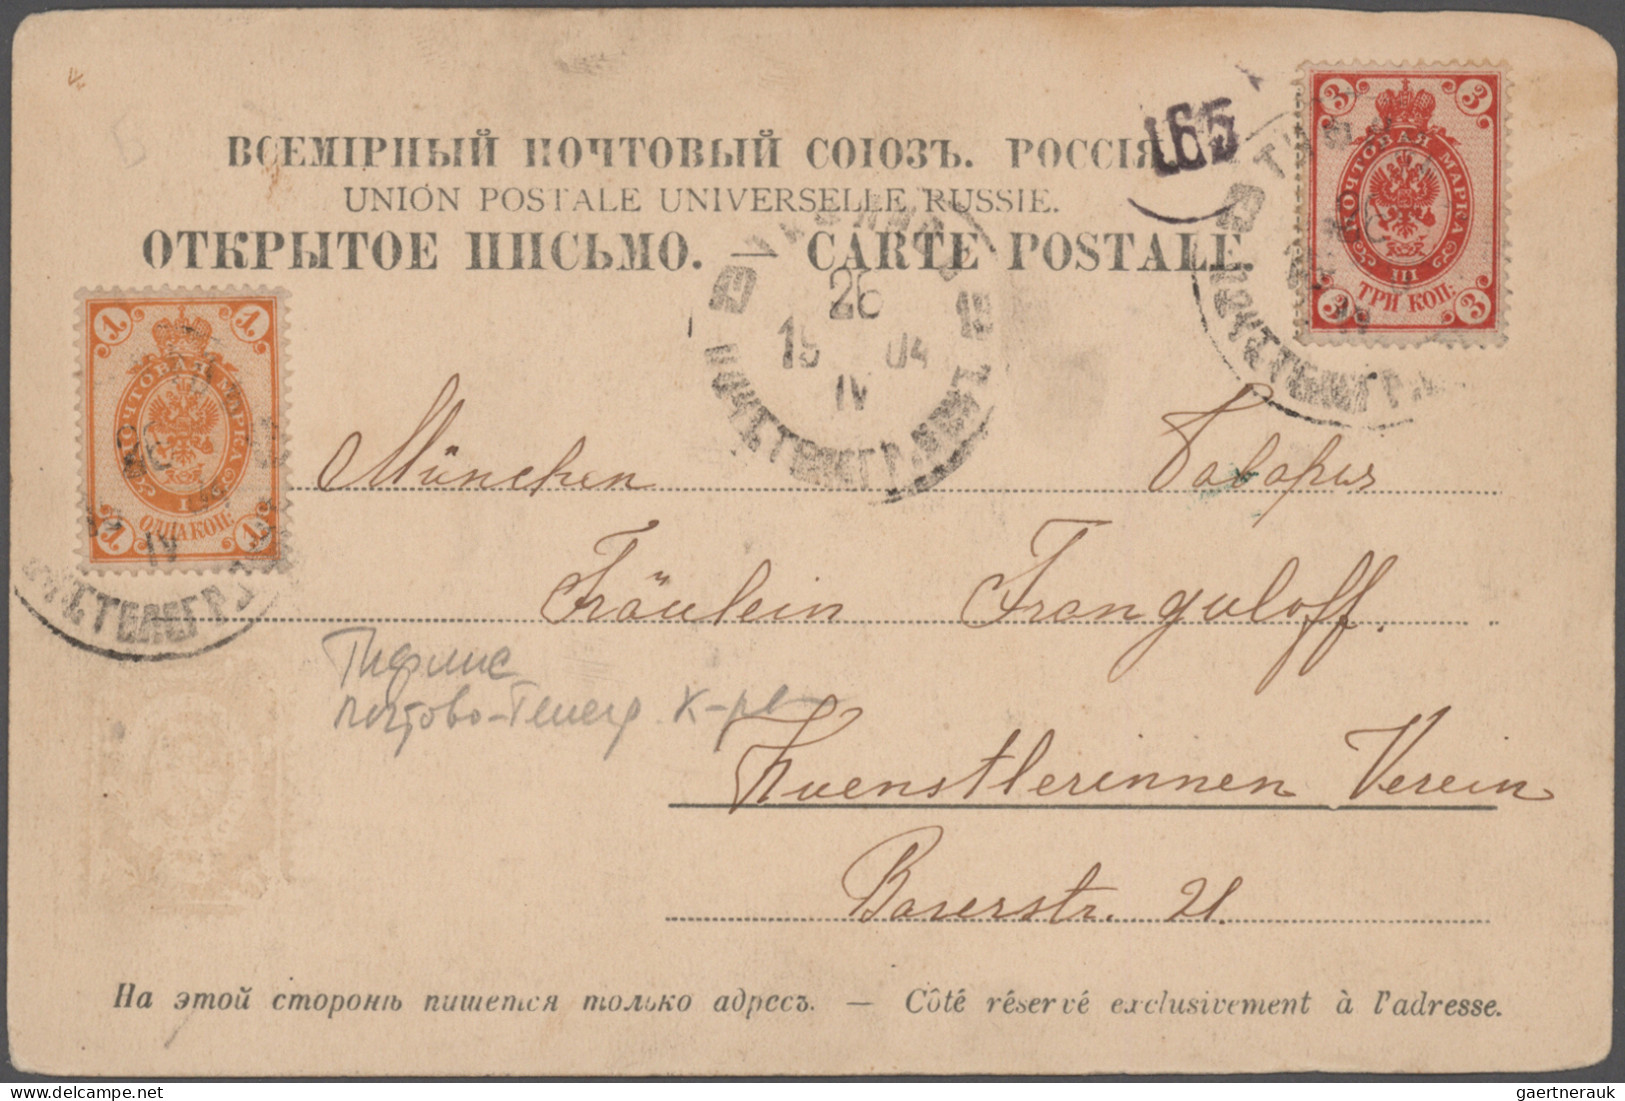 ВСЕМІРНЫЙ ПОЧТОВЫЙ СОЮЗЪ. РОССІЯ
UNION POSTALE UNIVERSELLE RUSSIE.
ОТКРЫТОЕ ПИСЬМО. — CARTE POSTALE.
165
3 3
ПОЧТОВАЯ МАРКА
III
3 ТРИ КОП: 3
1 1
ПОЧТОВАЯ МАРКА
1
1 ОДНА КОП: 1
26
19 04
IV
IV
München Бавария
Fräulein Franguloff.
Тифлис
почтово-телегр к-ра
Kuenstlerinnen Verein
Barerstr. 21.
На этой сторонѣ пишется только адресъ. — Côté réservé exclusivement à l'adresse.
www.delcampe.net
gaertnerauk